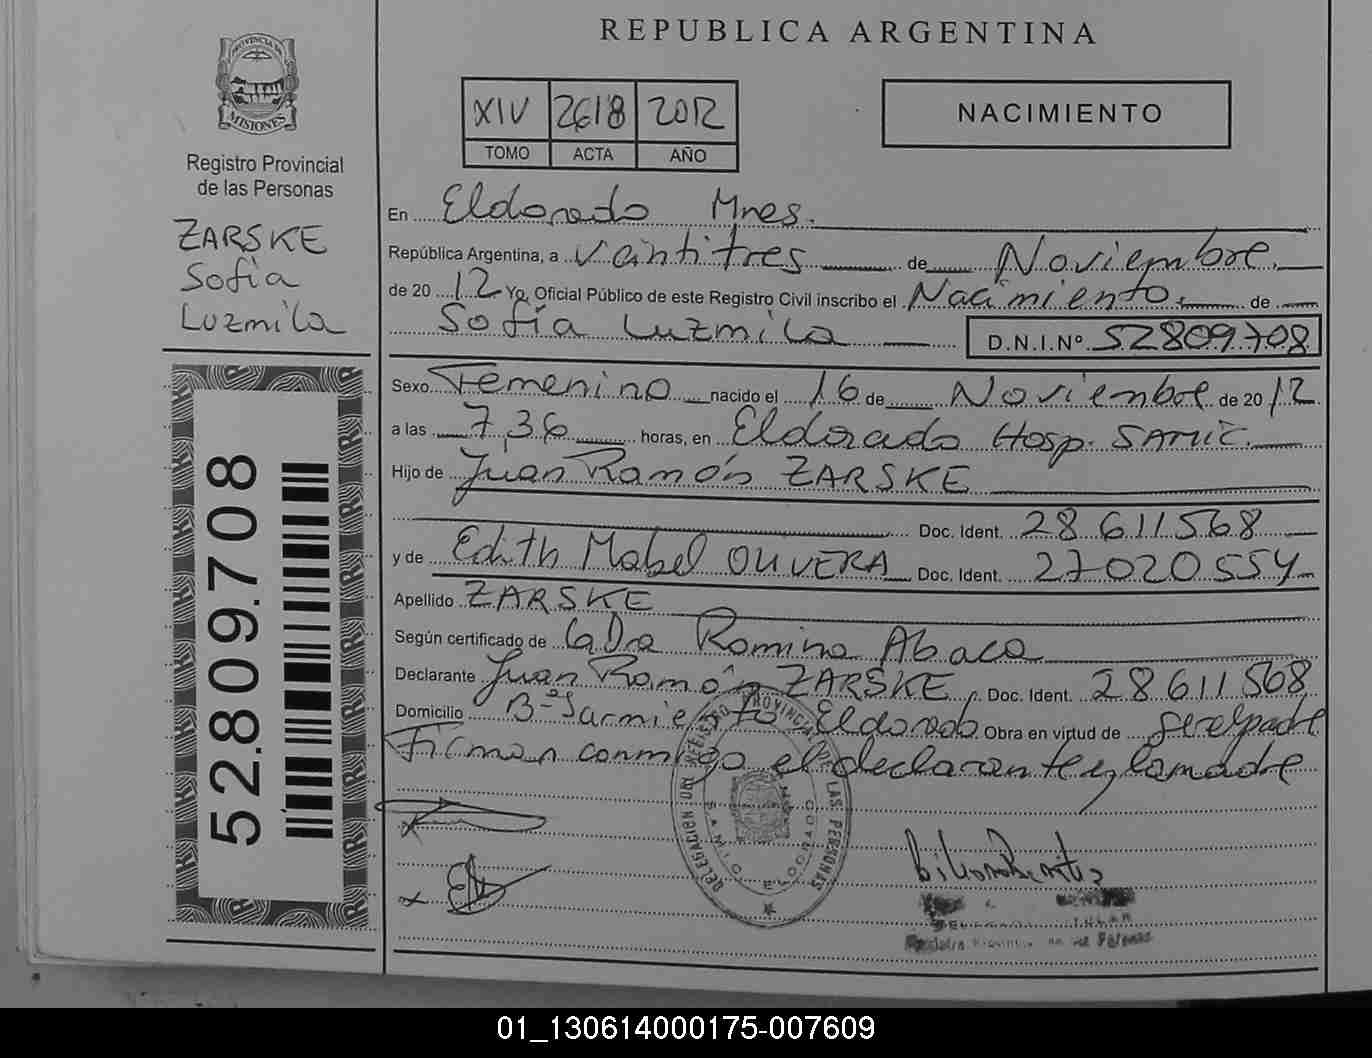 REPUBLICA ARGENTINA
PROVINCIA DE
MISIONES
XIV 2618 2012
TOMO ACTA AÑO
NACIMIENTO
Registro Provincial
de las Personas
ZARSKE
Sofía
Luzmila
52.809.708
En Eldorado Mnes.
República Argentina, a Veintitres de Noviembre
de 2012 Yo, Oficial Público de este Registro Civil inscribo el Nacimiento de
Sofía Luzmila D.N.I.Nº 52809708
Sexo Femenino nacido el 16 de Noviembre de 2012
a las 7,36 horas, en Eldorado Hosp. SAMIC.
Hijo de Juan Ramón ZARSKE
Doc. Ident. 28611568
y de Edith Mabel OLIVERA Doc. Ident. 27020554
Apellido ZARSKE
Según certificado de la Dra Romina Abaca
Declarante Juan Ramón ZARSKE, Doc. Ident. 28611568
Domicilio Bº Sarmiento Eldorado Obra en virtud de ser el padre
Firman conmigo el declarante y la madre
DELEGACION DEL REGISTRO PROVINCIAL DE LAS PERSONAS
SAMIC ELDORADO
01_130614000175-007609